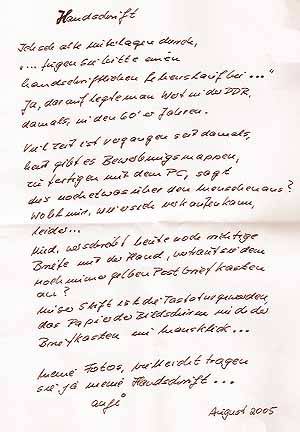 Handschrift
Ich sehe alte Unterlagen durch,
"... fügen Sie bitte einen
handschriftlichen Lebenslauf bei ..."
Ja, darauf legte man Wert in der DDR,
damals, in den 60'er Jahren.
Viel Zeit ist vergangen seit damals,
heut gibt es Bewerbungsmappen,
zu fertigen mit dem PC, sagt
das noch etwas über den Menschen aus?
Wohl nur, wie er sich verkaufen kann,
leider...
Und, wer schreibt heute noch richtige
Briefe mit der Hand, vertraut sie dem
noch immer gelben Postbriefkasten
an?
Unser Stift ist die Tastatur geworden,
das Papier der Bildschirm und der
Briefkasten ein Mausklick...
Meine Fotos, vielleicht tragen
sie ja meine Handschrift...
August 2005